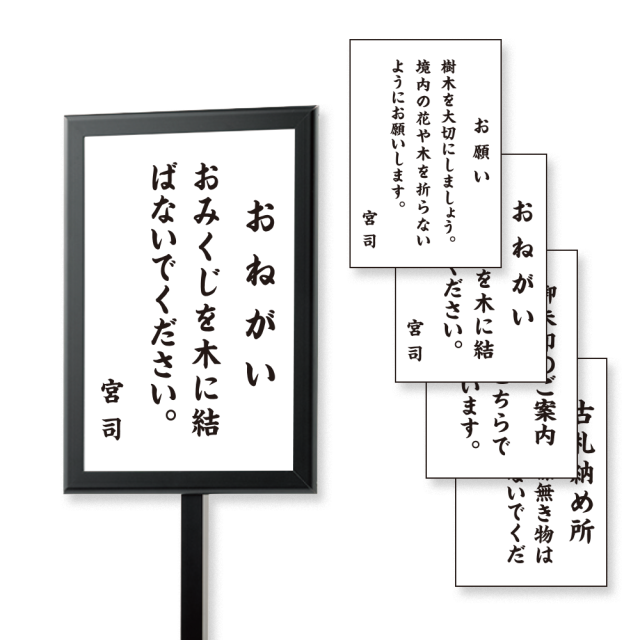 おねがい
おみくじを木に結
ばないでください。
宮司
お願い
樹木を大切にしましょう。
境内の花や木を折らない
ようにお願いします。
宮司
おねがい
を木に結
ください。
宮司
御朱印のご案内
こちらで
います。
古札納め所
無き物は
ないでくだ